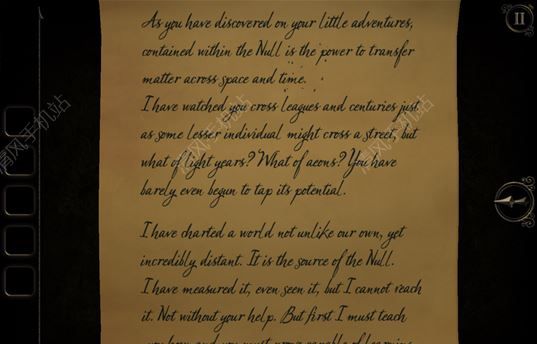 As you have discovered on your little adventures,
contained within the Null is the power to transfer
matter across space and time.
I have watched you cross leagues and centuries just
as some lesser individual might cross a street, but
what of light years? What of aeons? You have
barely even begun to tap its potential.
I have charted a world not unlike our own, yet
incredibly distant. It is the source of the Null.
I have measured it, even seen it, but I cannot reach
it. Not without your help. But first I must teach